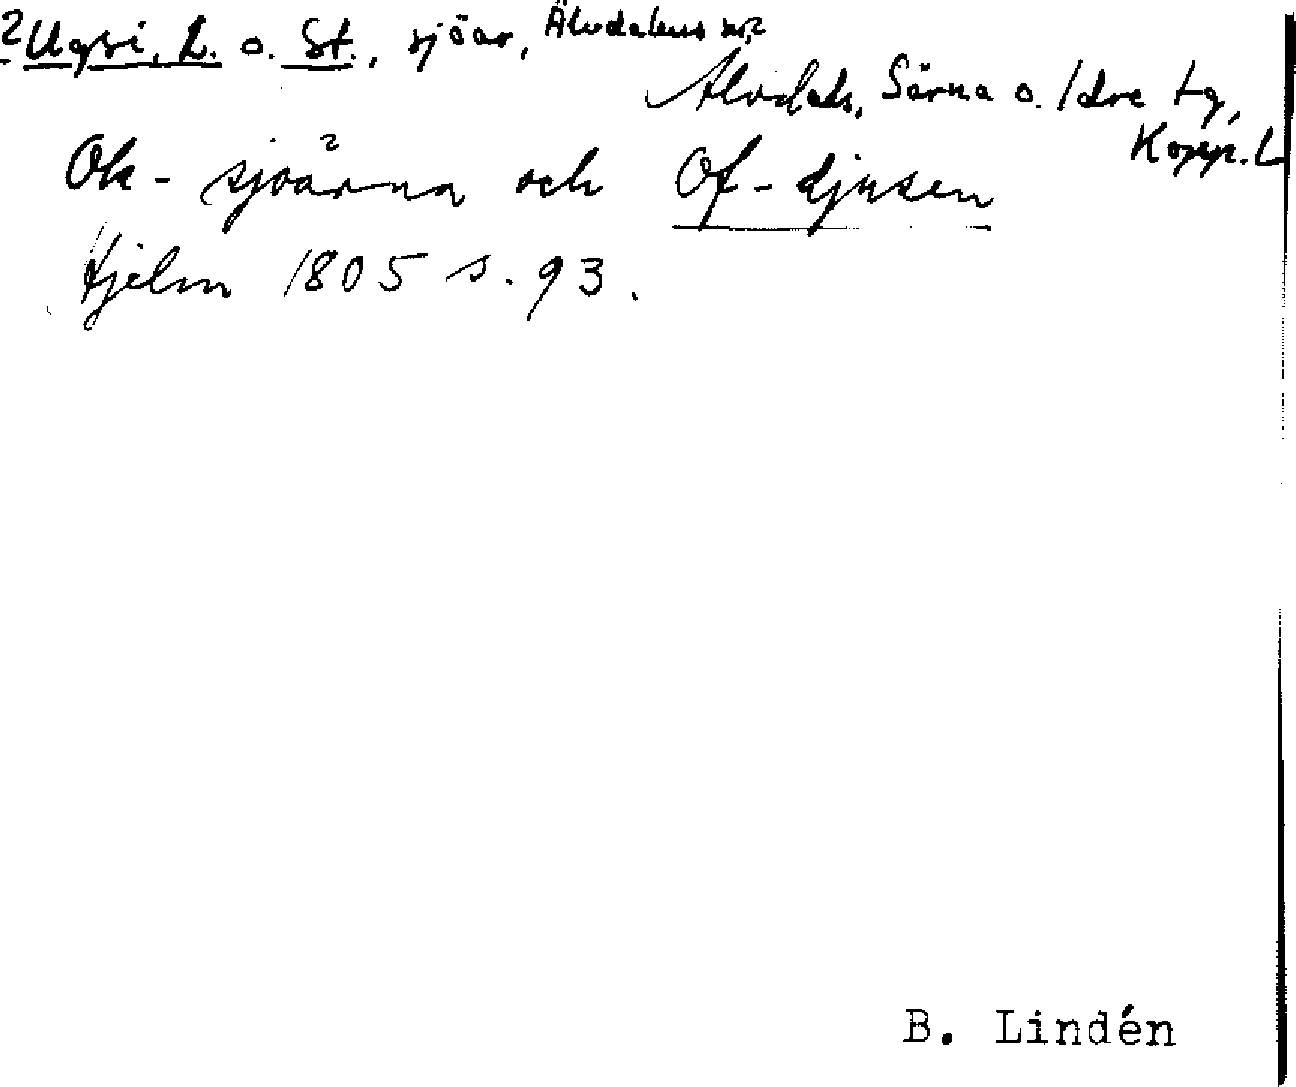 ? Ugsi, L. o. St., sjöar, Älvdalens sn?
Älvdals, Särna o. Idre tg,
Kopp. L
Ok - sjöarna och Of - djusen
Hjelm 1805 s. 93.
B. Lindén